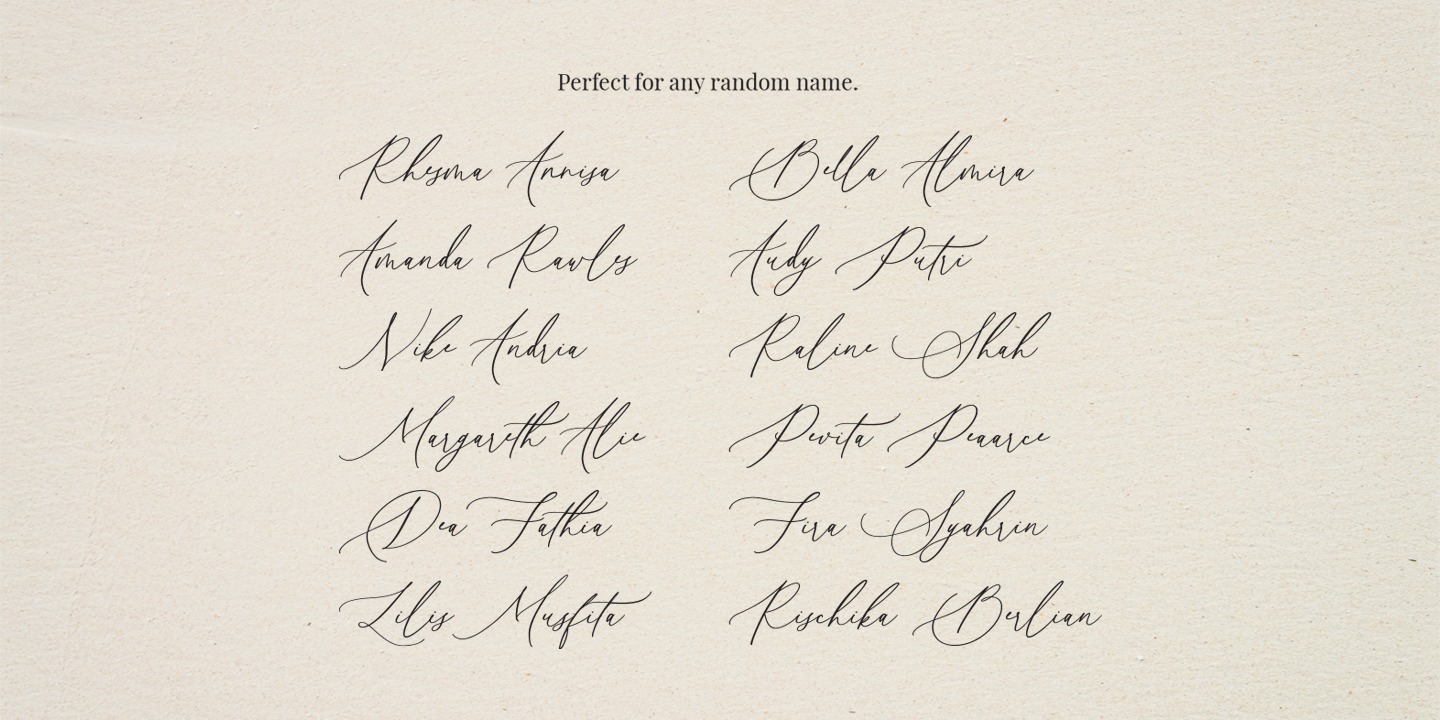 Perfect for any random name.
Rhesma Annisa
Bella Almira
Amanda Rawles
Audy Putri
Nike Andria
Raline Shah
Margareth Alie
Pevita Peaarce
Dea Fathia
Fira Syahrin
Lilis Musfita
Rischika Berlian